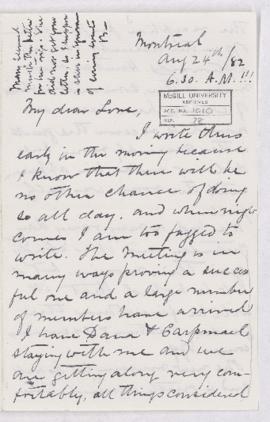 Montreal
Aug 24th /82
6.30. A.M!!!
McGILL UNIVERSITY
ARCHIVES
ACC. NO. 1010
REF. 78
My dear Love,
I write thus
early in the morning because
I know that there will be
no other chance of doing
so all day. and when night
comes I am too fagged to
write. The Meeting is in
many ways proving a success
ful one and a large number
of members have arrived
I have Dana & Carpmael
staying with me and we
are getting along very com-
fortably, all things considered